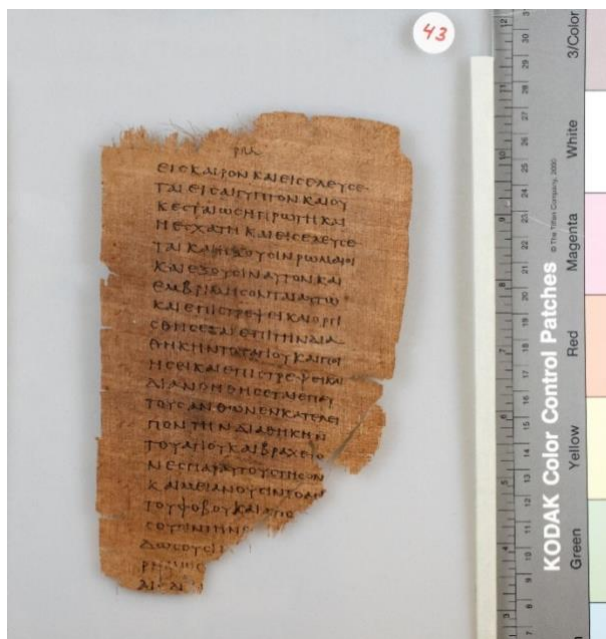 43
ΕΙϹΚΑΙΡΟΝΚΑΙΕΙϹΕΛΕΥϹΕ
ΤΑΙΕΙϹΑΙΓΥΠΤΟΝΚΑΙΟΥ
ΚΕϹΤΑΙΩϹΗΠΡΩΤΗΚΑΙ
ΗΕϹΧΑΤΗΚΑΙΕΙϹΕΛΕΥϹΕ
ΤΑΙΚΑΙΗΞΟΥϹΙΝΡΩΜΑΙΟΙ
ΚΑΙΕΞΟΥϹΙΝΑΥΤΟΝΚΑΙ
ΕΜΒΡΙΜΗϹΟΝΤΑΙΑΥΤΩ
ΚΑΙΕΠΙϹΤΡΕΨΕΙΚΑΙΟΡΓΙ
ϹΘΗϹΕΤΑΙΕΠΙΤΗΝΔΙΑ
ΘΗΚΗΝΤΟΥΑΓΙΟΥΚΑΙΠΟΙ
ΗϹΕΙΚΑΙΕΠΙϹΤΡΕΨΕΙΚΑΙ
ΔΙΑΝΟΗΘΗϹΕΤΑΙΕΠΑΥ
ΤΟΥϹΑΝΘΩΝΕΝΚΑΤΕΛΕΙ
ΠΟΝΤΗΝΔΙΑΘΗΚΗΝ
ΤΟΥΑΓΙΟΥΚΑΙΒΡΑΧΕΙΟ
ΝΕϹΠΑΡΑΥΤΟΥϹΤΗϹΟΝ
ΚΑΙΜΙΑΝΟΥϹΙΝΤΟΑΓΙ
ΤΟΥΦΟΒΟΥΚΑΙΑΠΟ
ϹΟΥϹΙΝΤΗΝΘ
ΔΩϹΟΥϹΙ
KODAK Color Control Patches
© The Tiffen Company, 2000
Green
Yellow
Red
Magenta
White
3/Color